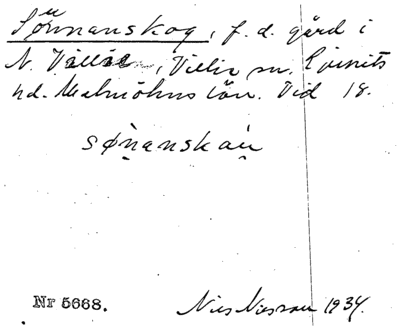 Sönnanskog, f. d. gård i
N. Villie, Villie sn. Ljunits
hd. Malmöhus län. Vid 18.
sønanskau̯
Nr 5668.
Nils Nilsson 1934.